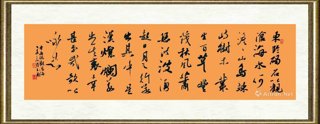 東臨碣石以觀
滄海水何
澹澹山島竦
峙樹木叢
生百草豐
茂秋風蕭
瑟洪波涌
起日月之行若
出其中星
漢燦爛若
出其里幸
甚至哉歌以
詠志